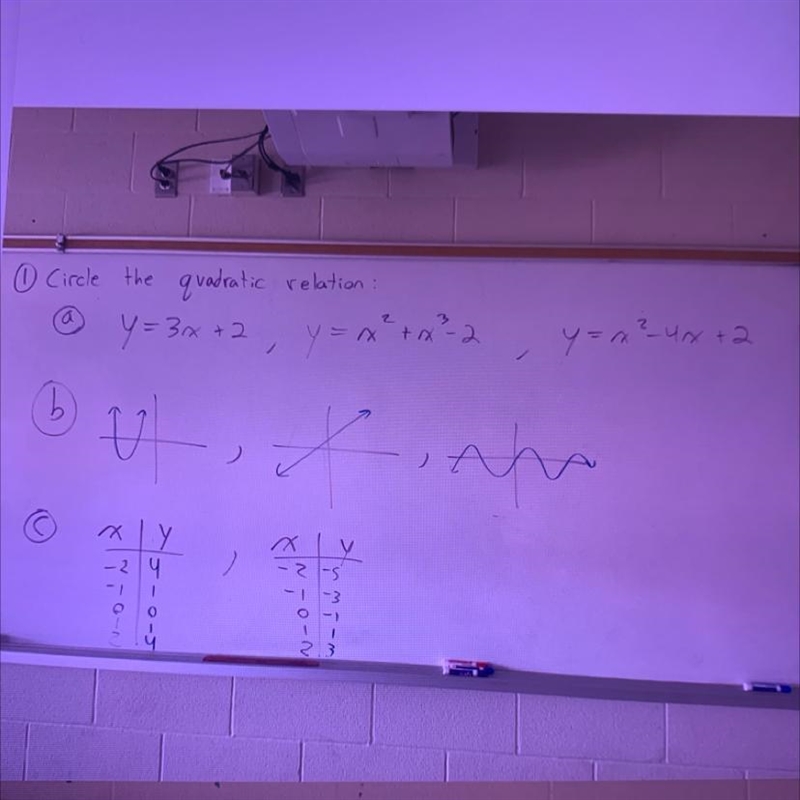 ① Circle the quadratic relation:
ⓐ y = 3x + 2 , y = x² + x³ - 2 , y = x² - 4x + 2
ⓑ , ,
ⓒ x | y , x | y
-2 | 4 -2 | -5
-1 | 1 -1 | -3
0 | 0 0 | -1
1 | 1 1 | 1
2 | 4 2 | 3